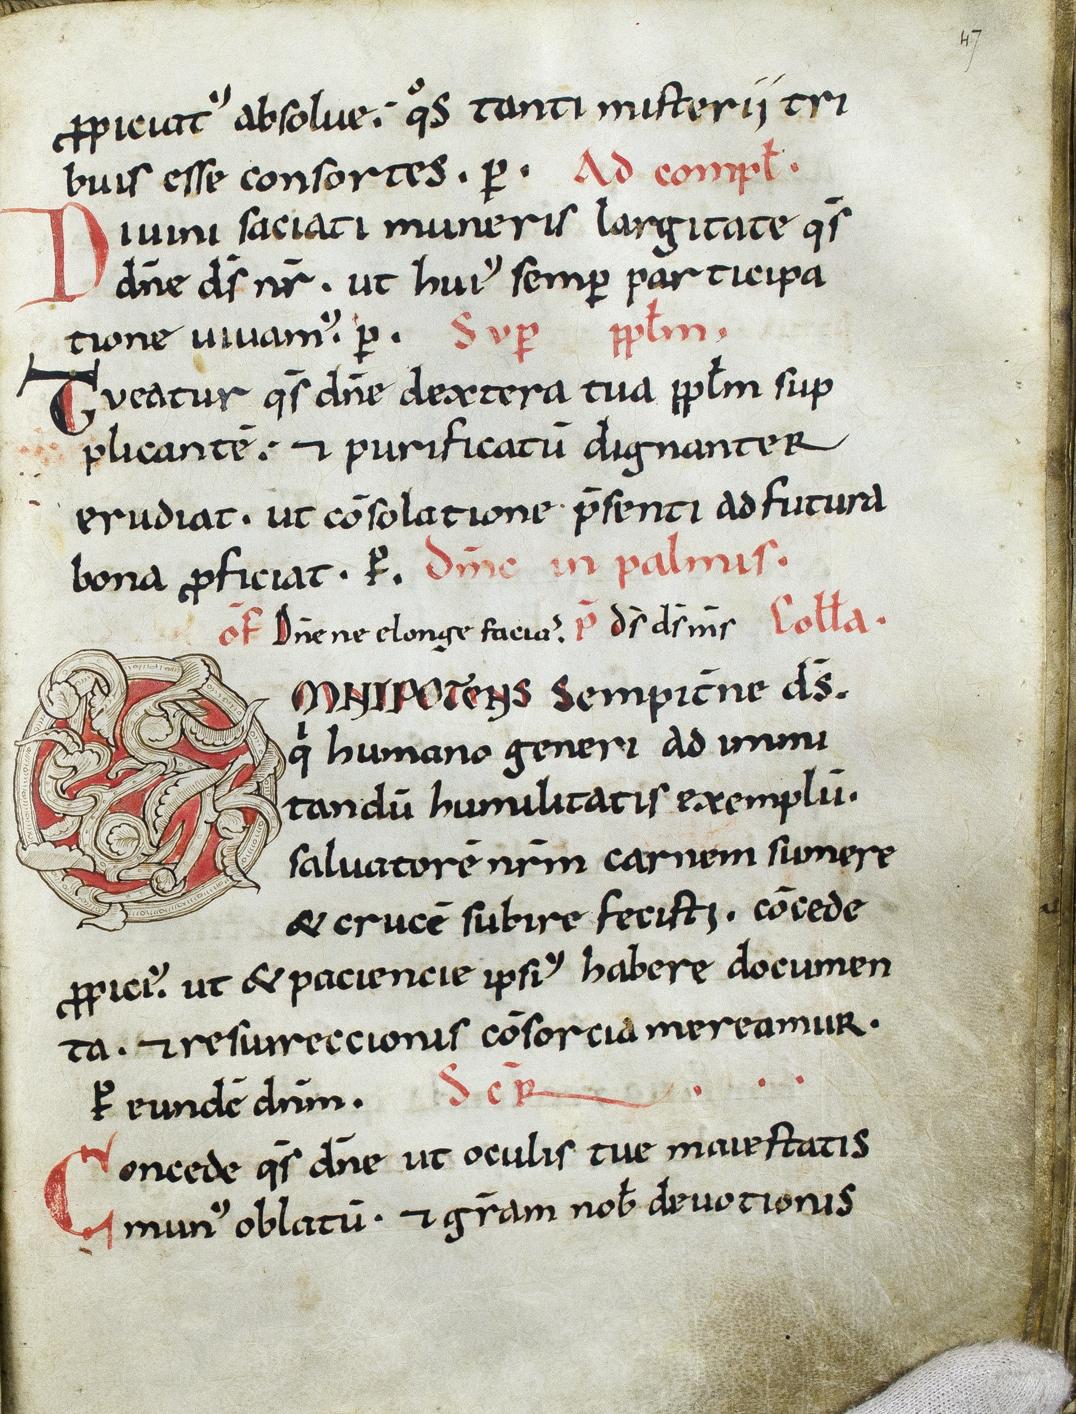 47
ꝓpiciat᾽ absolue. qͦs tanti misterij tri
buis esse consortes. ꝑ. Ad compl̄.
Diuini saciati muneris largitate qs̄
dn̄e ds̄ nr̄. ut hui᾽ semꝑ participa
tione uiuam᾽. ꝑ. Suꝑ ppl̄m.
Tueatur qs̄ dn̄e dextera tua ppl̄m sup
plicantē. ⁊ purificatū dignanter
erudiat. ut cōsolatione p̄senti ad futura
bona ꝓficiat. ꝑ. Dn̄ic in palmis.
of̄ Dn̄e ne elonge facia᾽. p̄ ds̄ ds̄ ms̄ Coll̄a.
OMNIPOTENS Sempit̄ne ds̄.
qⁱ humano generi ad immi
tandū humilitatis exemplū.
saluatorē nr̄m carnem sumere
& crucē subire fecisti. cōcede
ꝓpici᾽. ut & paciencie ipsi᾽ habere documen
ta. ⁊ resurreccionis cōsorcia mereamur.
ꝑ eundē dn̄m. Secꝝ
Concede qs̄ dn̄e ut oculis tue maiestatis
mun᾽ oblatū. ⁊ gr̄am nob̄ deuotionis